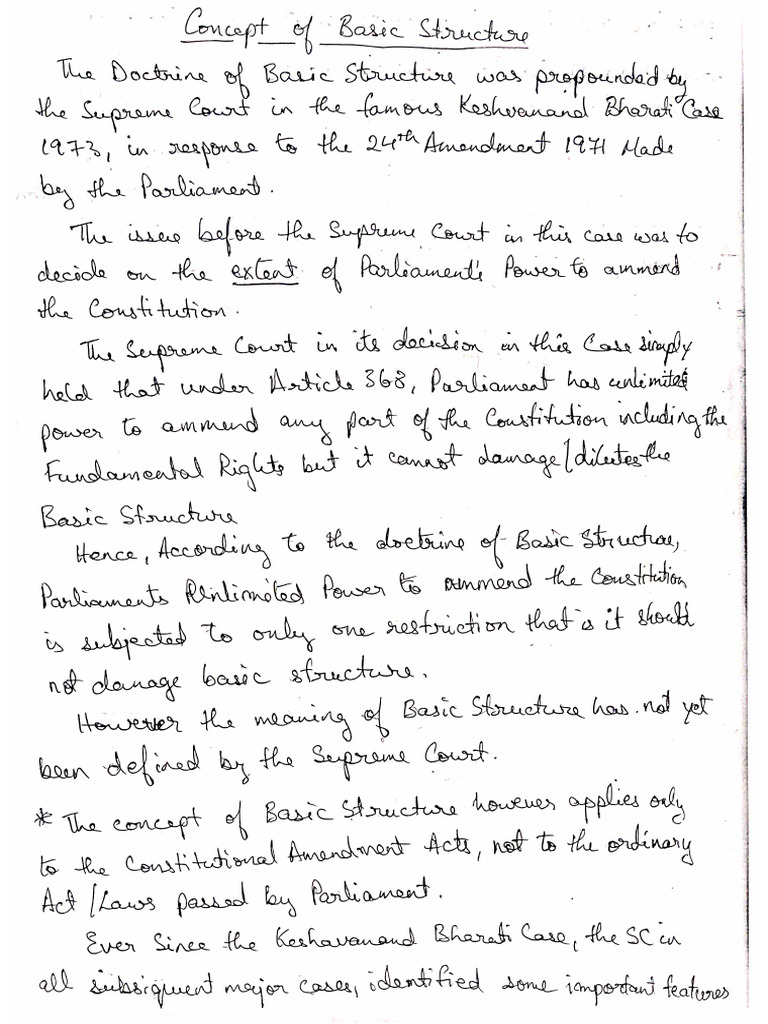 Concept of Basic Structure
The Doctrine of Basic Structure was propounded by
the Supreme Court in the famous Keshvanand Bharati Case
1973, in response to the 24th Amendment 1971 Made
by the Parliament.
The issue before the Supreme Court in this case was to
decide on the extent of Parliament's Power to ammend
the Constitution.
The Supreme Court in its decision in this Case simply
held that under Article 368, Parliament has unlimited
power to ammend any part of the Constitution including the
Fundamental Rights but it cannot damage/dilutes the
Basic Structure
Hence, According to the doctrine of Basic Structure,
Parliaments Unlimited Power to ammend the Constitution
is subjected to only one restriction that is it should
not damage basic structure.
However the meaning of Basic Structure has not yet
been defined by the Supreme Court.
* The concept of Basic Structure however applies only
to the Constitutional Amendment Acts, not to the ordinary
Act/Laws passed by Parliament.
Ever Since the Keshavanand Bharati Case, the SC in
all subsiquent major cases, identified some important features